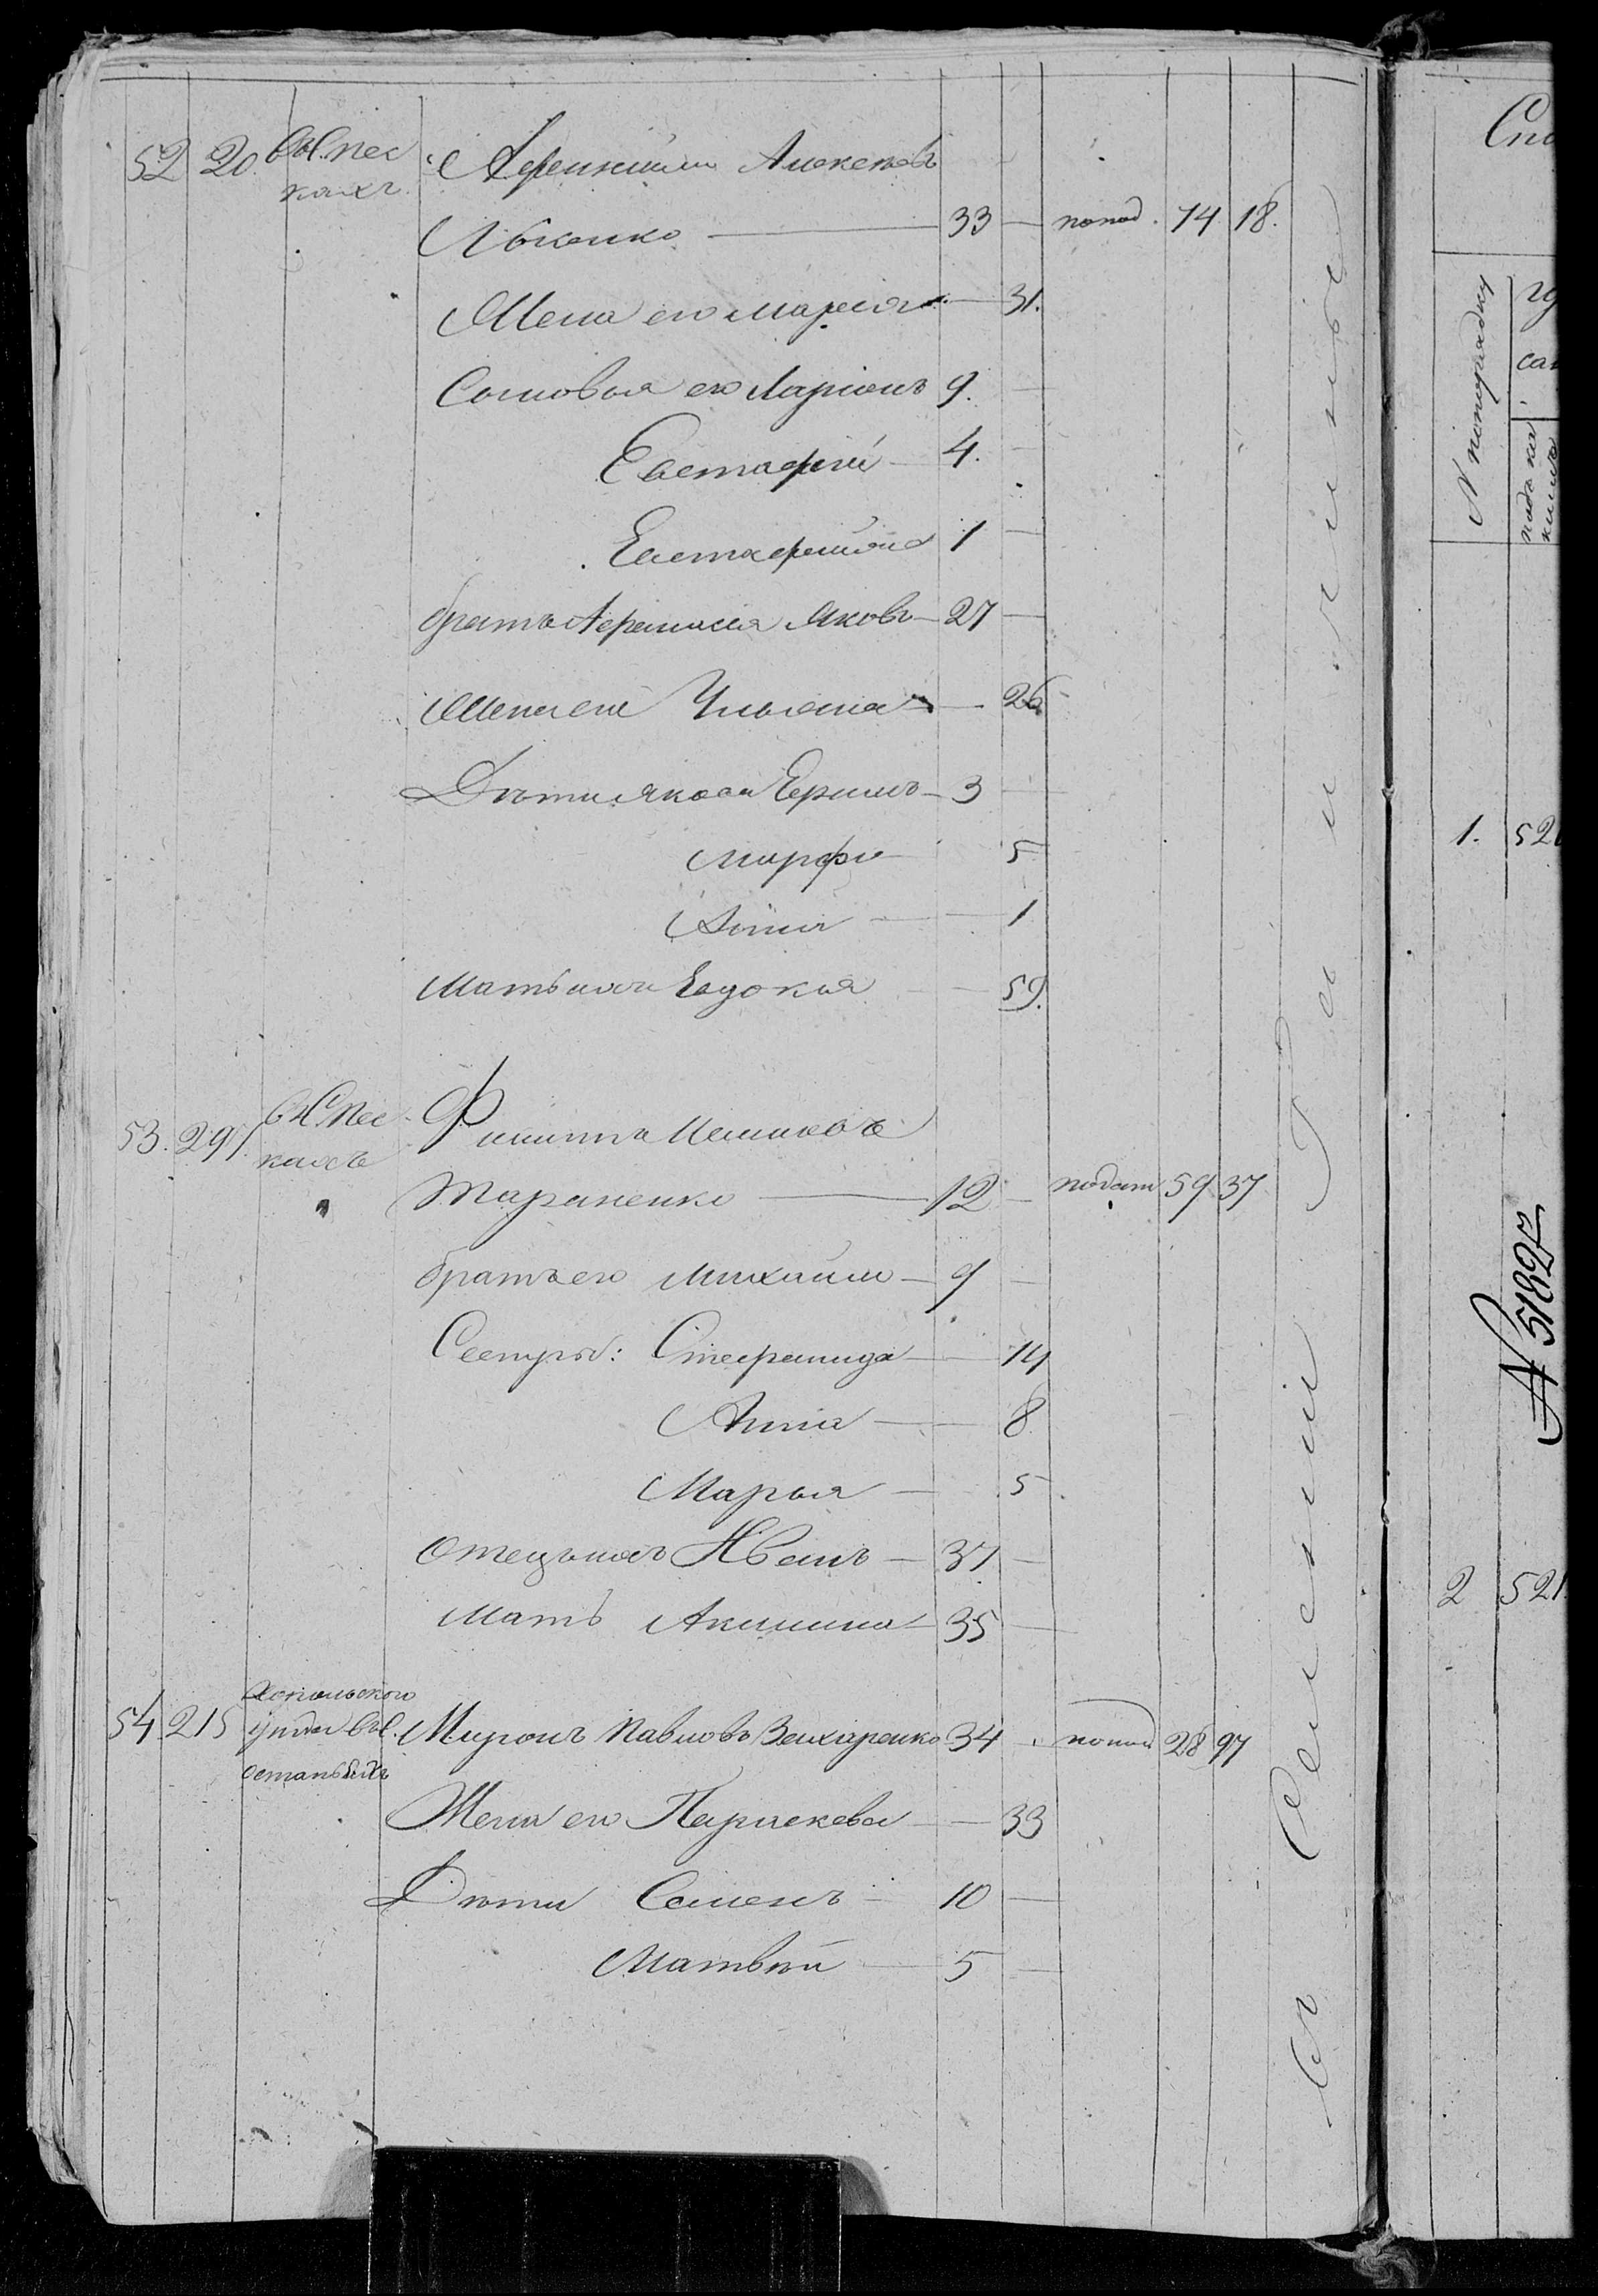 52 20. въ С. Пес
ках.
Афанасий Алексеевъ
Лысенко — 33 — попод. 14 18.
Жена его Марфа — 31.
Сыновья его Ларіонъ 9. —
Евстафій — 4. —
Евстафій 1 —
братъ Афанасія Яковъ — 27 —
Жена его Ульяна — 26
Дѣти Якова Ефимъ — 3 —
Марфа 5
Анна — 1
Мать ихъ Евдокія — 59.
53. 297. въ С. Пес
кахъ
Филиппъ Ивановъ
Тараненко — 12 — подат 59 37
братъ его Михаилъ — 9 —
Сестры: Степанида — 14
Анна — 8
Марья — 5
Отецъ ихъ Иванъ — 37 —
Мать Акилина — 35 —
54. 215 уѣзда въ С.
Миронъ Павловъ Захаренко 34 попод 28 97
Жена его Параскева — 33
Дѣти Семенъ — 10 —
Матвѣй — 5 —
Спо
N попорядку
1. 52
N 51827
2 521